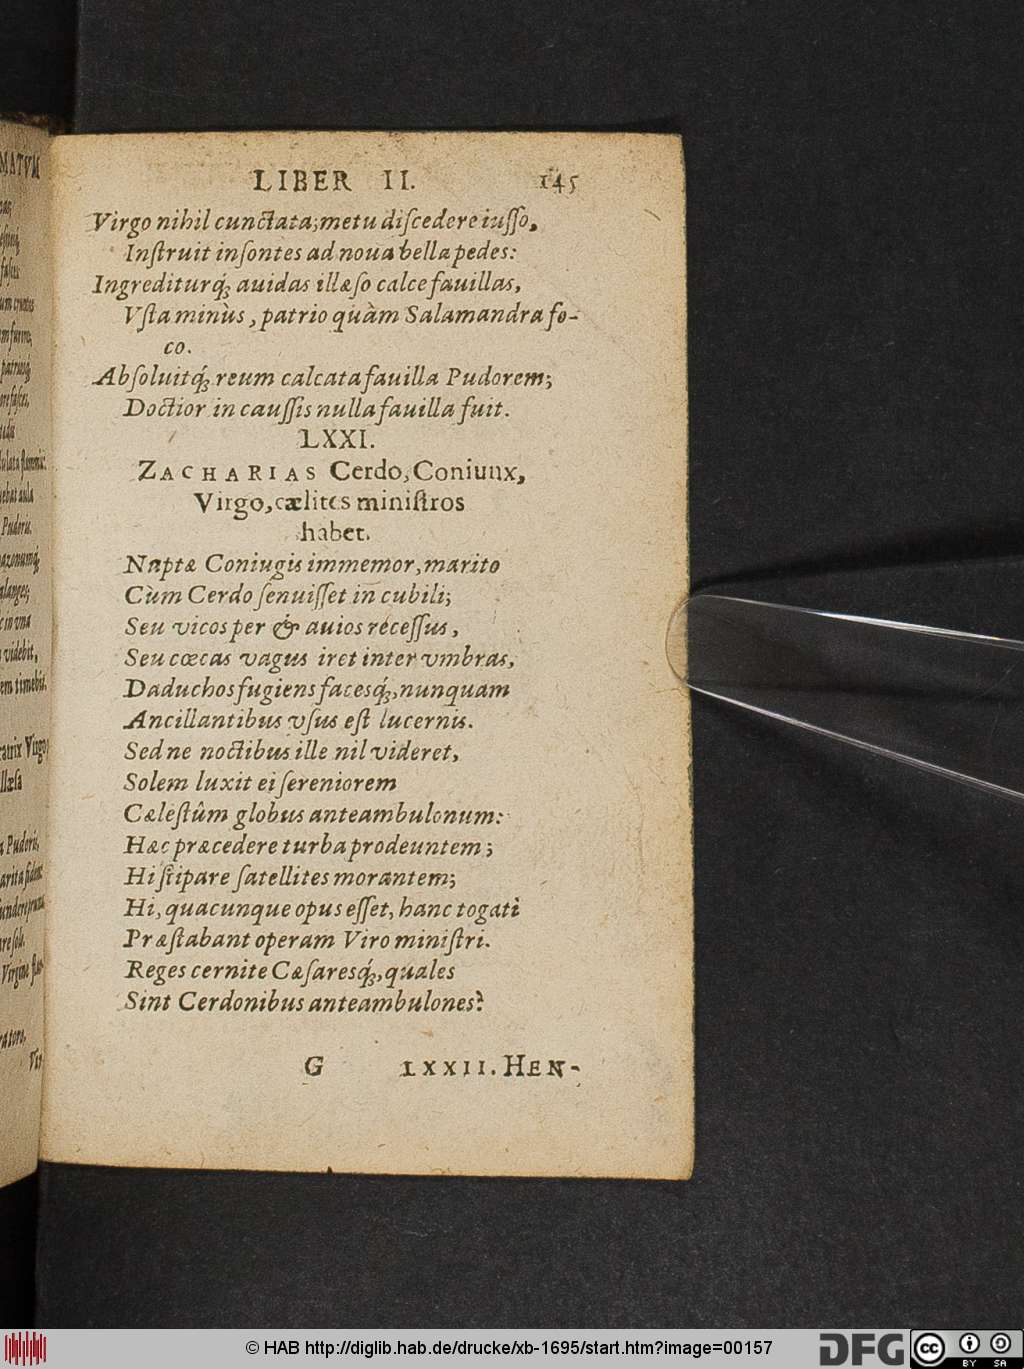 LIBER II. 145
Virgo nihil cunctata; metu diſcedere iuſſo,
Inſtruit inſontes ad noua bella pedes:
Ingrediturq́; auidas illæſo calce fauillas,
Vſta minùs, patrio quàm Salamandra fo-
co.
Abſoluitq́; reum calcata fauilla Pudorem;
Doctior in cauſſis nulla fauilla fuit.
LXXI.
ZACHARIAS Cerdo, Coniunx,
Virgo, cælites miniſtros
habet.
Nuptæ Coniugis immemor, marito
Cùm Cerdo ſenuiſſet in cubili;
Seu vicos per & auios receſſus,
Seu cœcas vagus iret inter vmbras,
Daduchos fugiens facesq́;, nunquam
Ancillantibus vſus eſt lucernis.
Sed ne noctibus ille nil videret,
Solem luxit ei ſereniorem
Cæleſtûm globus anteambulonum:
Hæc præcedere turba prodeuntem;
Hi ſtipare ſatellites morantem;
Hi, quacunque opus eſſet, hanc togati
Præſtabant operam Viro miniſtri.
Reges cernite Cæſaresq́;, quales
Sint Cerdonibus anteambulones?
G LXXII. HEN-
MATVM
Pudoris.
videbit,
em timebis.
Virgo,
Virgine
Vir
© HAB http://diglib.hab.de/drucke/xb-1695/start.htm?image=00157
DFG
cc
BY SA